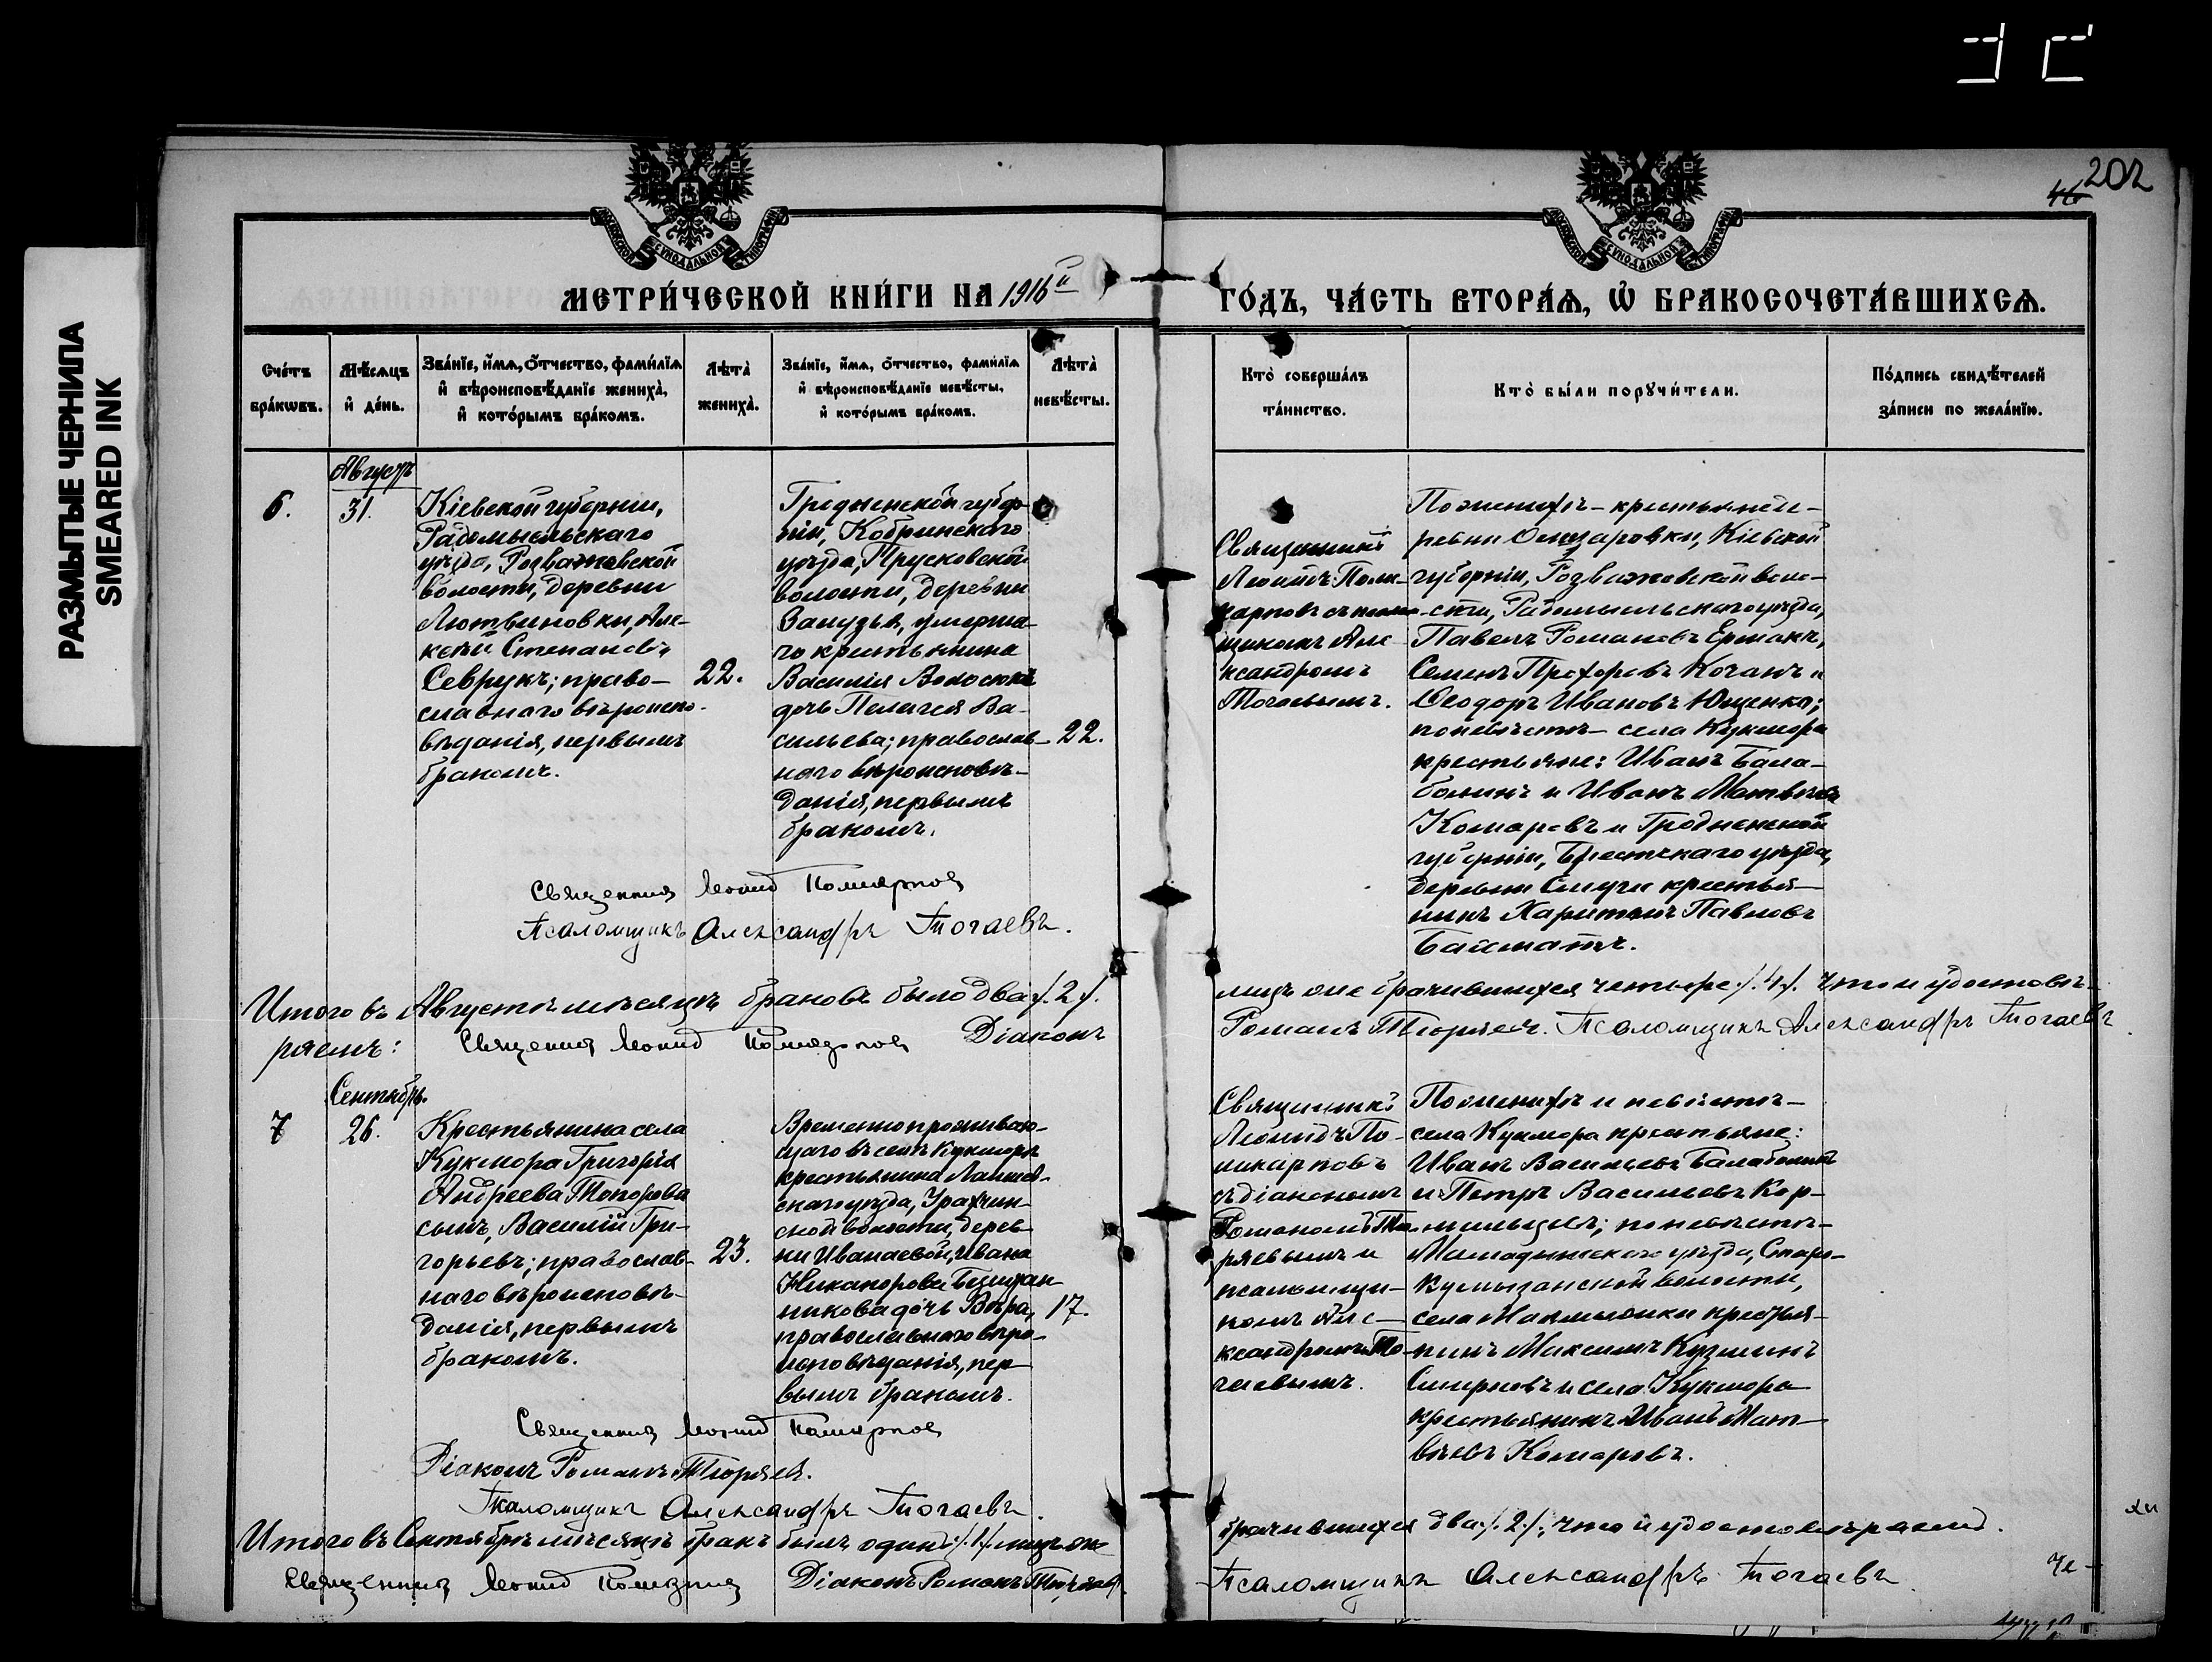 202
46
РАЗМЫТЫЕ ЧЕРНИЛА
SMEARED INK
МЕТРИ́ЧЕСКОЙ КНИ́ГИ НА 1916й
ГО́ДЪ, ЧА́СТЬ ВТОРА́Я, Ѡ БРАКОСОЧЕТА́ВШИХСЯ.
Сче́тъ бра́кѡвъ.
Мѣ́сяцъ и де́нь.
Зва́нїе, и́мя, о́тчество, фами́лїя
и вѣроисповѣ́данїе жениха̀,
и кото́рымъ бра́комъ.
Лѣта̀ жениха̀.
Зва́нїе, и́мя, о́тчество, фами́лїя
и вѣроисповѣ́данїе невѣ́сты,
и кото́рымъ бра́комъ.
Лѣта̀ невѣ́сты.
Кто̀ соверша́лъ
та́инство.
Кто̀ бы́ли порꙋчи́тели.
По́дпись свидѣ́телей
за́писи по жела́нїю.
Августъ
6.
31.
Кіевской губерніи,
Радомысльскаго
уѣзда, Розважевской
волости, деревни
Лютвиновки, Але-
ксѣй Степановъ
Севрукъ; право-
славнаго вѣроиспо-
вѣданія, первымъ
бракомъ.
22.
Гродненской губер-
ніи, Кобринскаго
уѣзда, Прусковской
волости, деревни
умерша-
го крестьянина
Василія Волосюка
дочь Пелагея Ва-
сильева; православ-
наго вѣроисповѣ-
данія, первымъ
бракомъ.
22.
Священникъ
Леонидъ Поли-
карповъ съ псалом-
щикомъ Але-
ксандромъ
Тогаевымъ.
По женихѣ - крестьяне де-
ревни Кіевской
губерніи, Розважевской воло-
сти, Радомысльскаго уѣзда,
Павелъ Романовъ Ермакъ,
Семенъ Прохоровъ Коганъ и
Ѳеодоръ Ивановъ Ющенко;
по невѣстѣ - села Кукмора
крестьяне: Иванъ Бала-
болинъ и Иванъ Матвѣевъ
Комаровъ и Гродненской
губерніи, Брестскаго уѣзда,
деревни крестья-
нинъ Харитонъ Павловъ
Священникъ Леонид Поликарпов
Псаломщикъ Александръ Тогаевъ.
Итого въ Августѣ мѣсяцѣ браковъ было два /.2./.
лицъ оно брачившихся четыре /.4./. что и удостовѣ-
ряемъ: Священник Леонид Поликарпов Діаконъ
Романъ Тюряевъ. Псаломщикъ Александръ Тогаевъ
Сентябрь.
7
26.
Крестьянина села
Кукмора Григорія
Андреева Топорова
сынъ, Василій Гри-
горьевъ; православ-
наго вѣроисповѣ-
данія, первымъ
бракомъ.
23.
Временно проживаю-
щаго въ селѣ Кукморѣ
крестьянина Лаишев-
скаго уѣзда,
ской волости, дерев-
ни Ивана
Никанорова
дочь Вѣра,
православнаго вѣро-
исповѣданія, пер-
вымъ бракомъ.
17.
Священникъ
Леонидъ По-
ликарповъ
съ діакономъ
Романомъ Тю-
ряевымъ и
псаломщи-
комъ Але-
ксандромъ То-
гаевымъ.
По женихѣ и невѣстѣ -
села Кукмора крестьяне:
Иванъ Васильевъ Балаболинъ
и Петръ Васильевъ Кор-
мильцевъ; по невѣстѣ -
Мамадышскаго уѣзда, Старо-
Кумызанской волости,
села крестья-
нинъ Максимъ Кузминъ
Смирновъ и села Кукмора
крестьянинъ Иванъ Мат-
вѣевъ Комаровъ.
Священник Леонид Поликарпов
Діаконъ Романъ Тюряевъ.
Псаломщикъ Александръ Тогаевъ.
Итого въ Сентябрѣ мѣсяцѣ бракъ былъ одинъ /.1./. лицъ оно
брачившихся два /.2./. что и удостовѣряемъ.
Священникъ Леонид Поликарпов Діаконъ Романъ Тюряевъ
Псаломщикъ Александръ Тогаевъ.